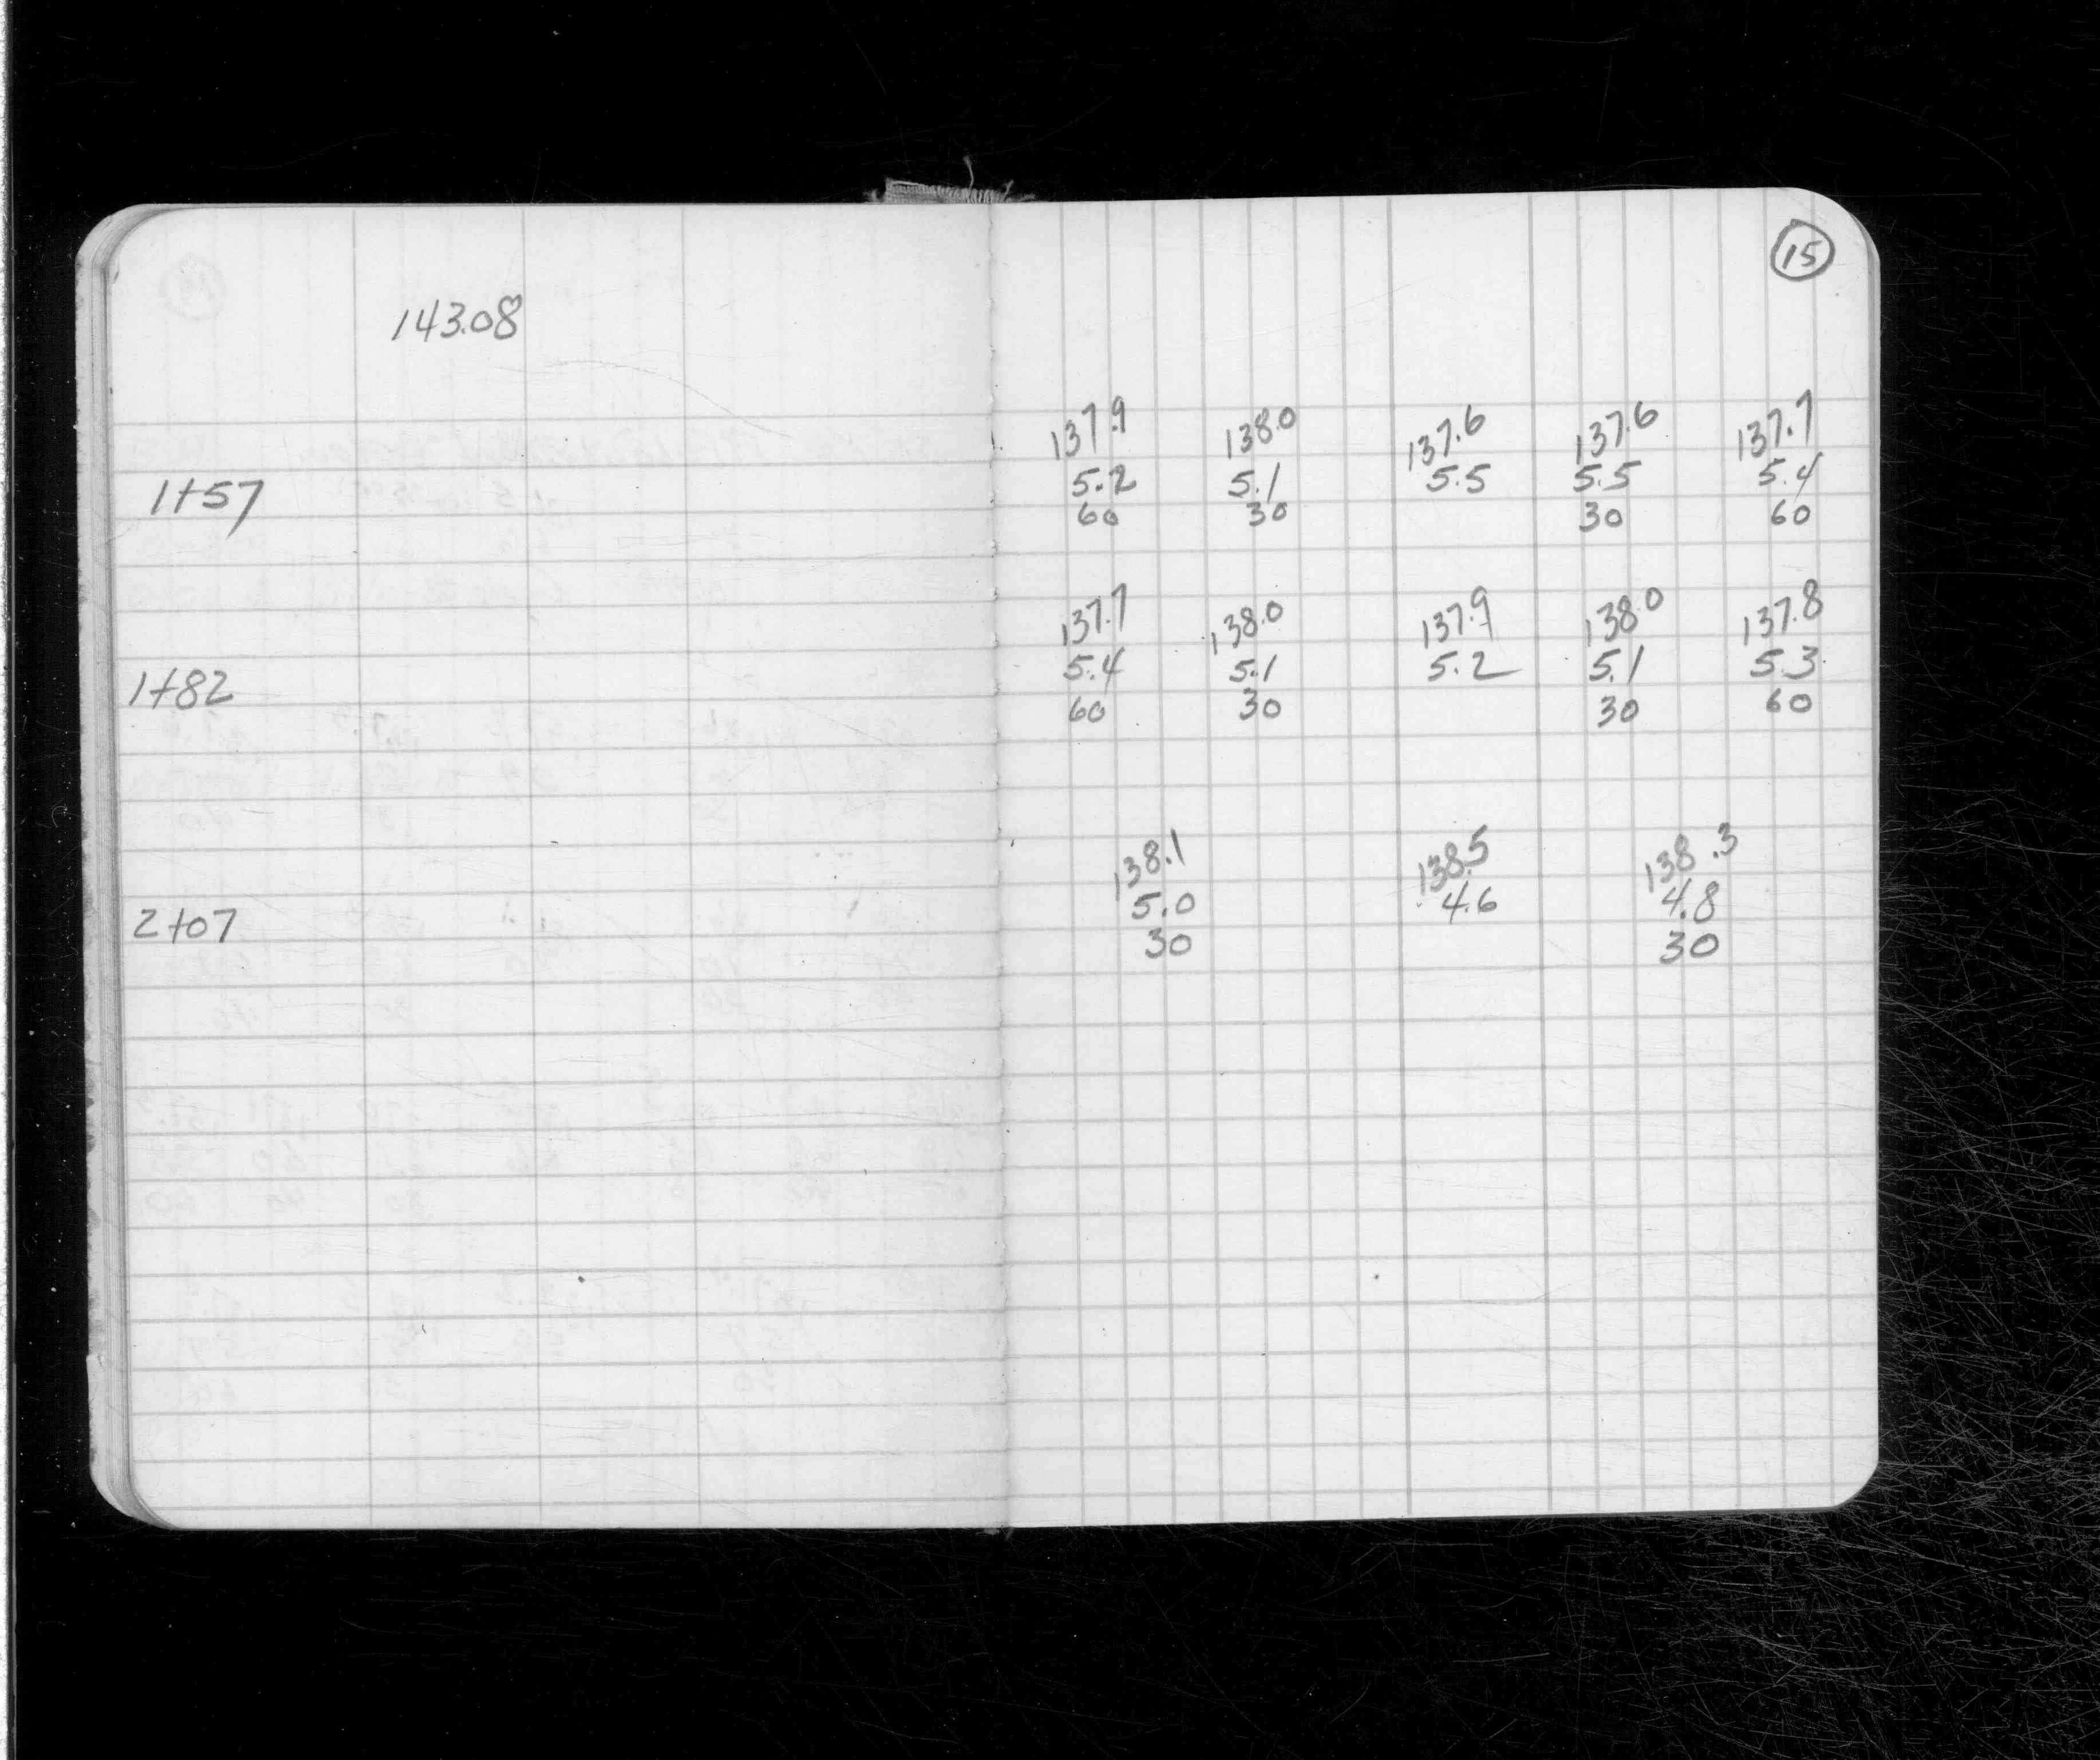 15
143.08
137.9 138.0 137.6 137.6 137.7
1+57 5.2 5.1 5.5 5.5 5.4
60 30 30 60
137.7 138.0 137.9 138.0 137.8
1+82 5.4 5.1 5.2 5.1 5.3
60 30 30 60
138.1 138.5 138.3
2+07 5.0 4.6 4.8
30 30